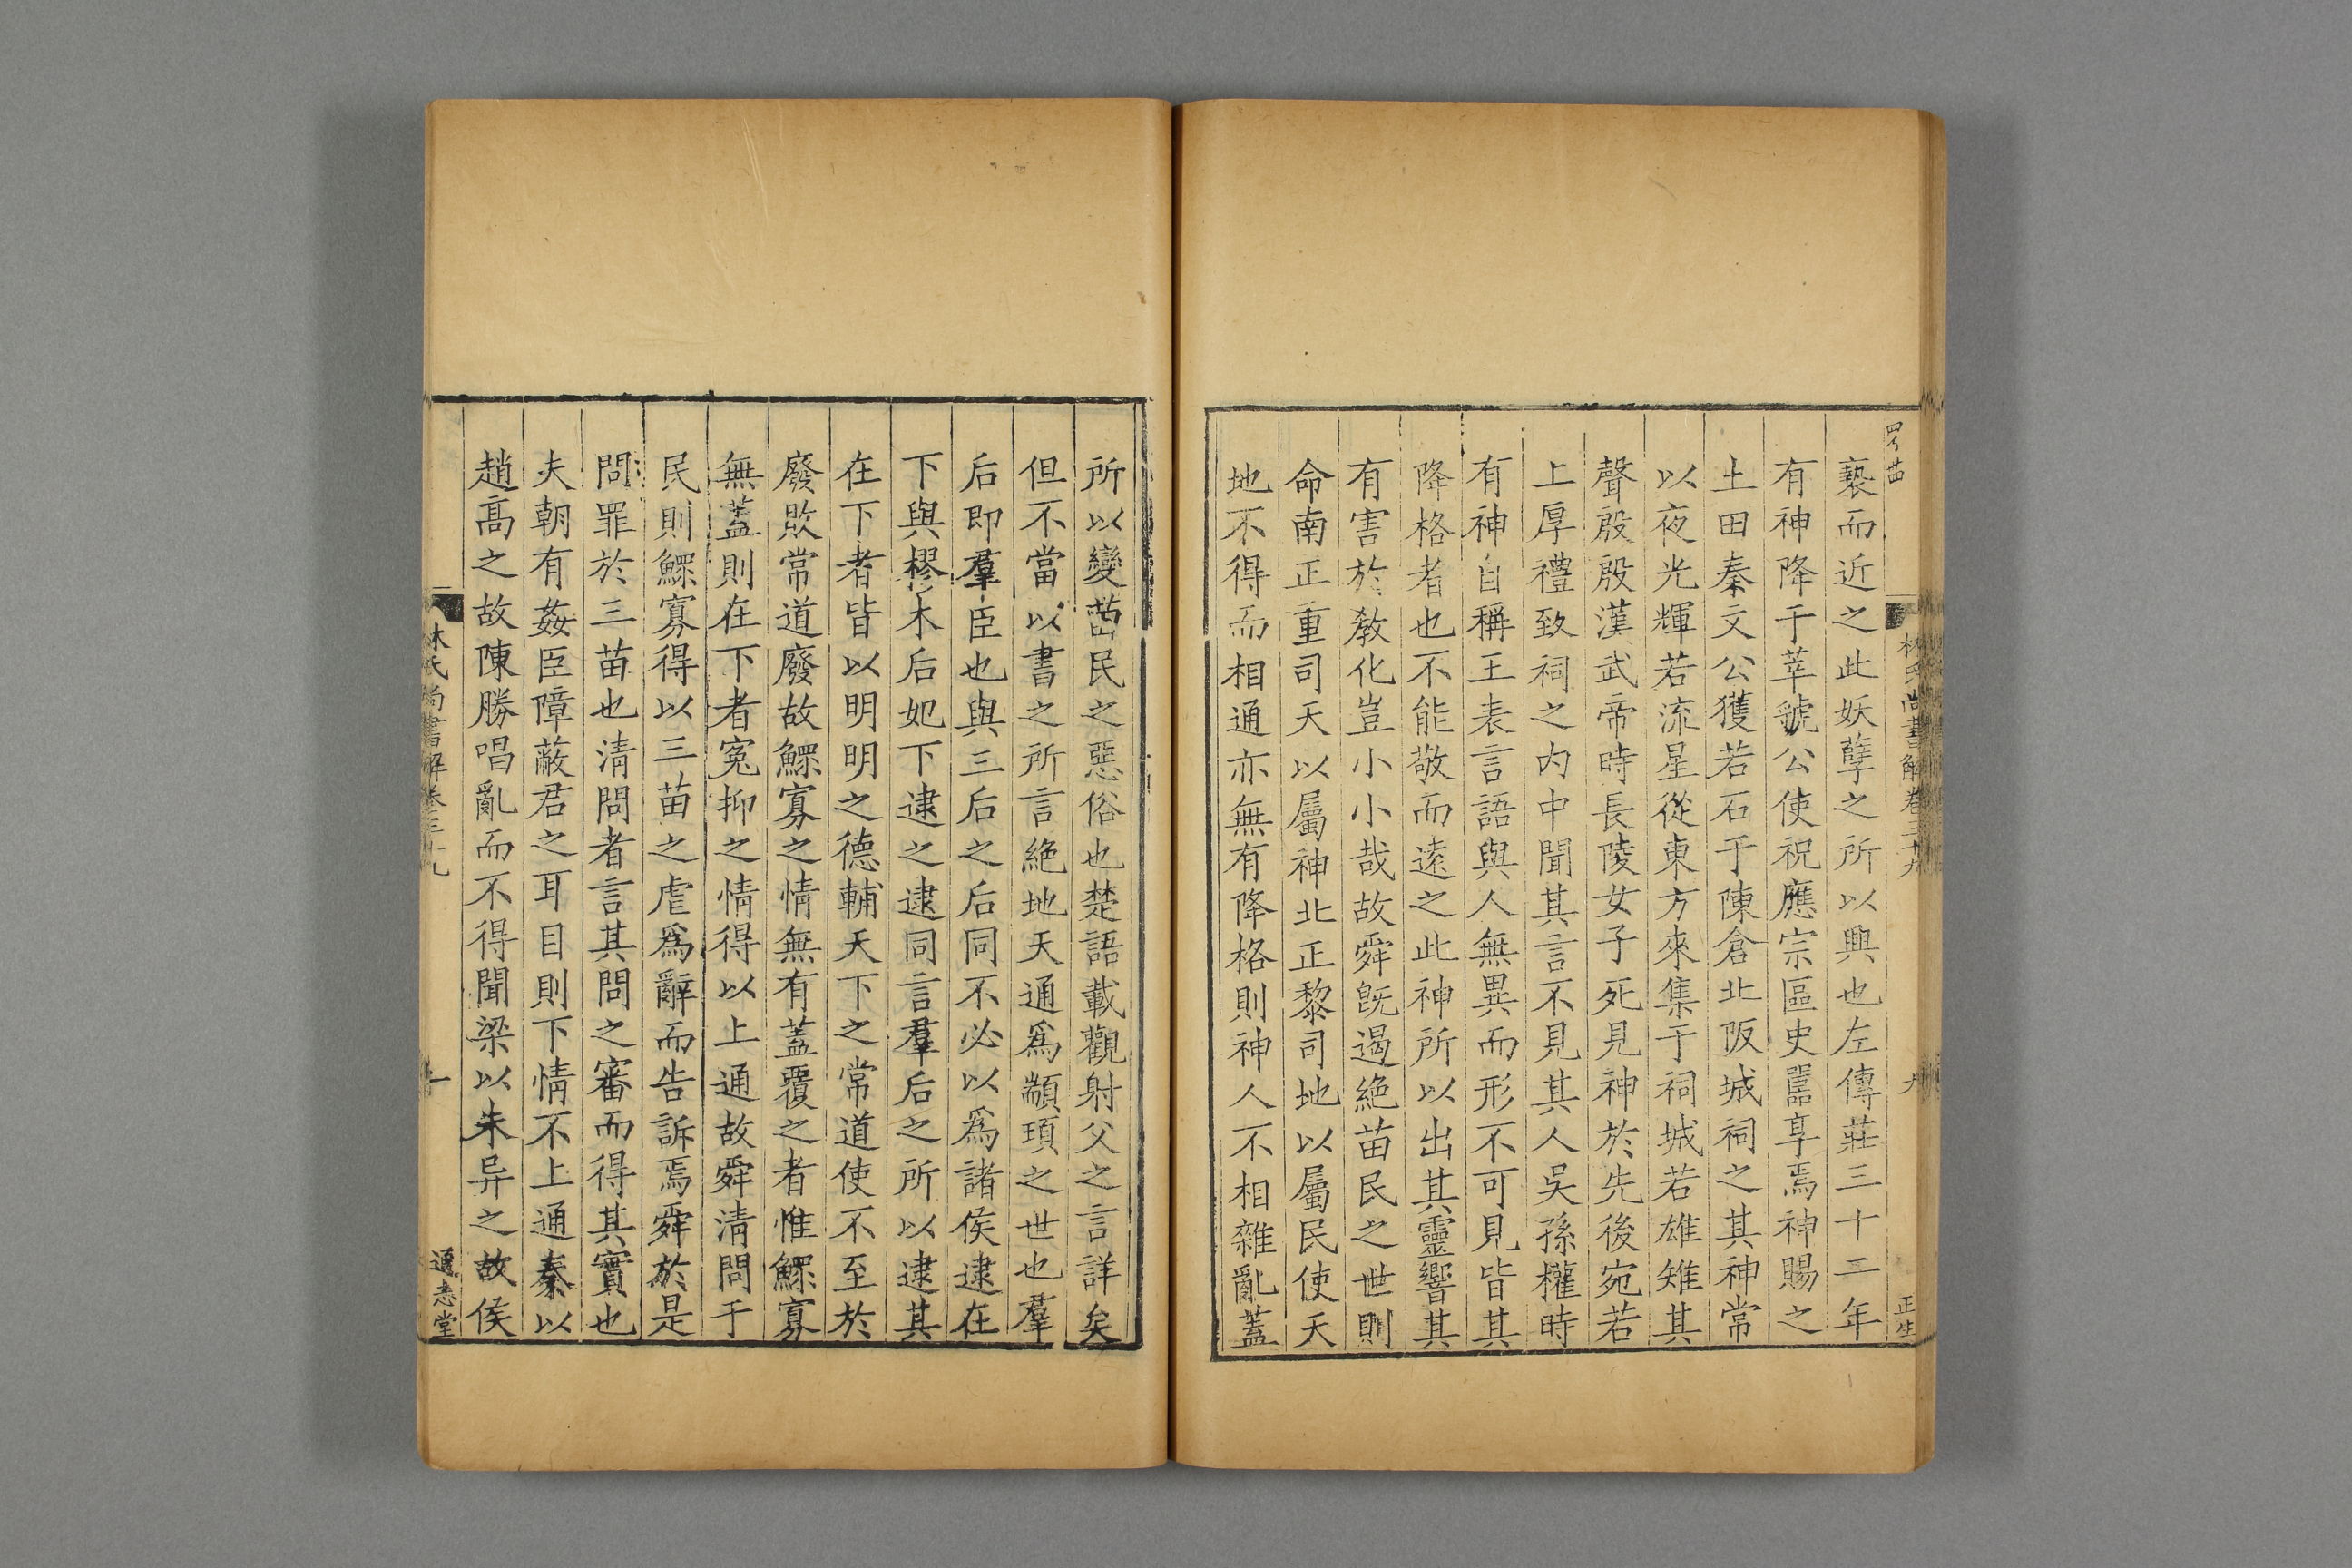 林氏尚書解卷三十九
九
正生
褻而近之此妖孽之所以興也左傳莊三十二年
有神降于莘虢公使祝應宗區史嚚享焉神賜之
土田秦文公獲若石于陳倉北阪城祠之其神常
以夜光輝若流星從東方來集于祠城若雄雉其
聲殷殷漢武帝時長陵女子死見神於先後宛若
上厚禮致祠之内中聞其言不見其人吳孫權時
有神自稱王表言語與人無異而形不可見皆其
降格者也不能敬而遠之此神所以出其靈響其
有害於教化豈小小哉故舜旣遏絕苗民之世則
命南正重司天以屬神北正黎司地以屬民使天
地不得而相通亦無有降格則神人不相雜亂蓋
所以變苗民之惡俗也楚語載觀射父之言詳矣
但不當以書之所言絕地天通爲顓頊之世也羣
后即羣臣也與三后之后同不必以爲諸侯逮在
下與樛木后妃下逮之逮同言羣后之所以逮其
在下者皆以明明之德輔天下之常道使不至於
廢敗常道廢故鰥寡之情無有蓋覆之者惟鰥寡
無蓋則在下者寃抑之情得以上通故舜清問于
民則鰥寡得以三苗之虐爲辭而告訴焉舜於是
問罪於三苗也清問者言其問之審而得其實也
夫朝有姦臣障蔽君之耳目則下情不上通秦以
趙高之故陳勝唱亂而不得聞梁以朱异之故侯
林氏尚書解卷三十九
通志堂